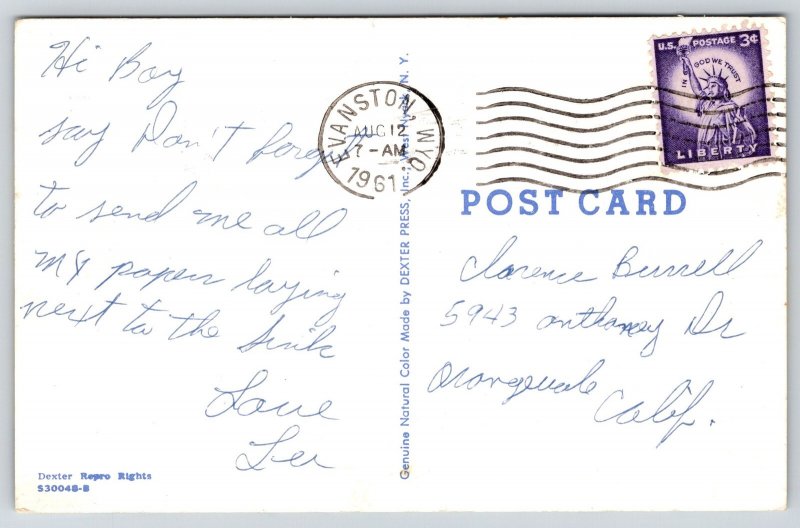 Hi Boy
say Don't forget
to send me all
my papers laying
next to the sink
Love
Lu
Dexter Repro Rights
S30048-B
Genuine Natural Color Made by DEXTER PRESS, Inc., West Nyack, N. Y.
EVANSTON, WYO.
AUG 12
7-AM
1961
U.S. POSTAGE 3¢
IN GOD WE TRUST
LIBERTY
POST CARD
Clarence Burrell
5943 Anthony Dr
Orangevale
Calif.